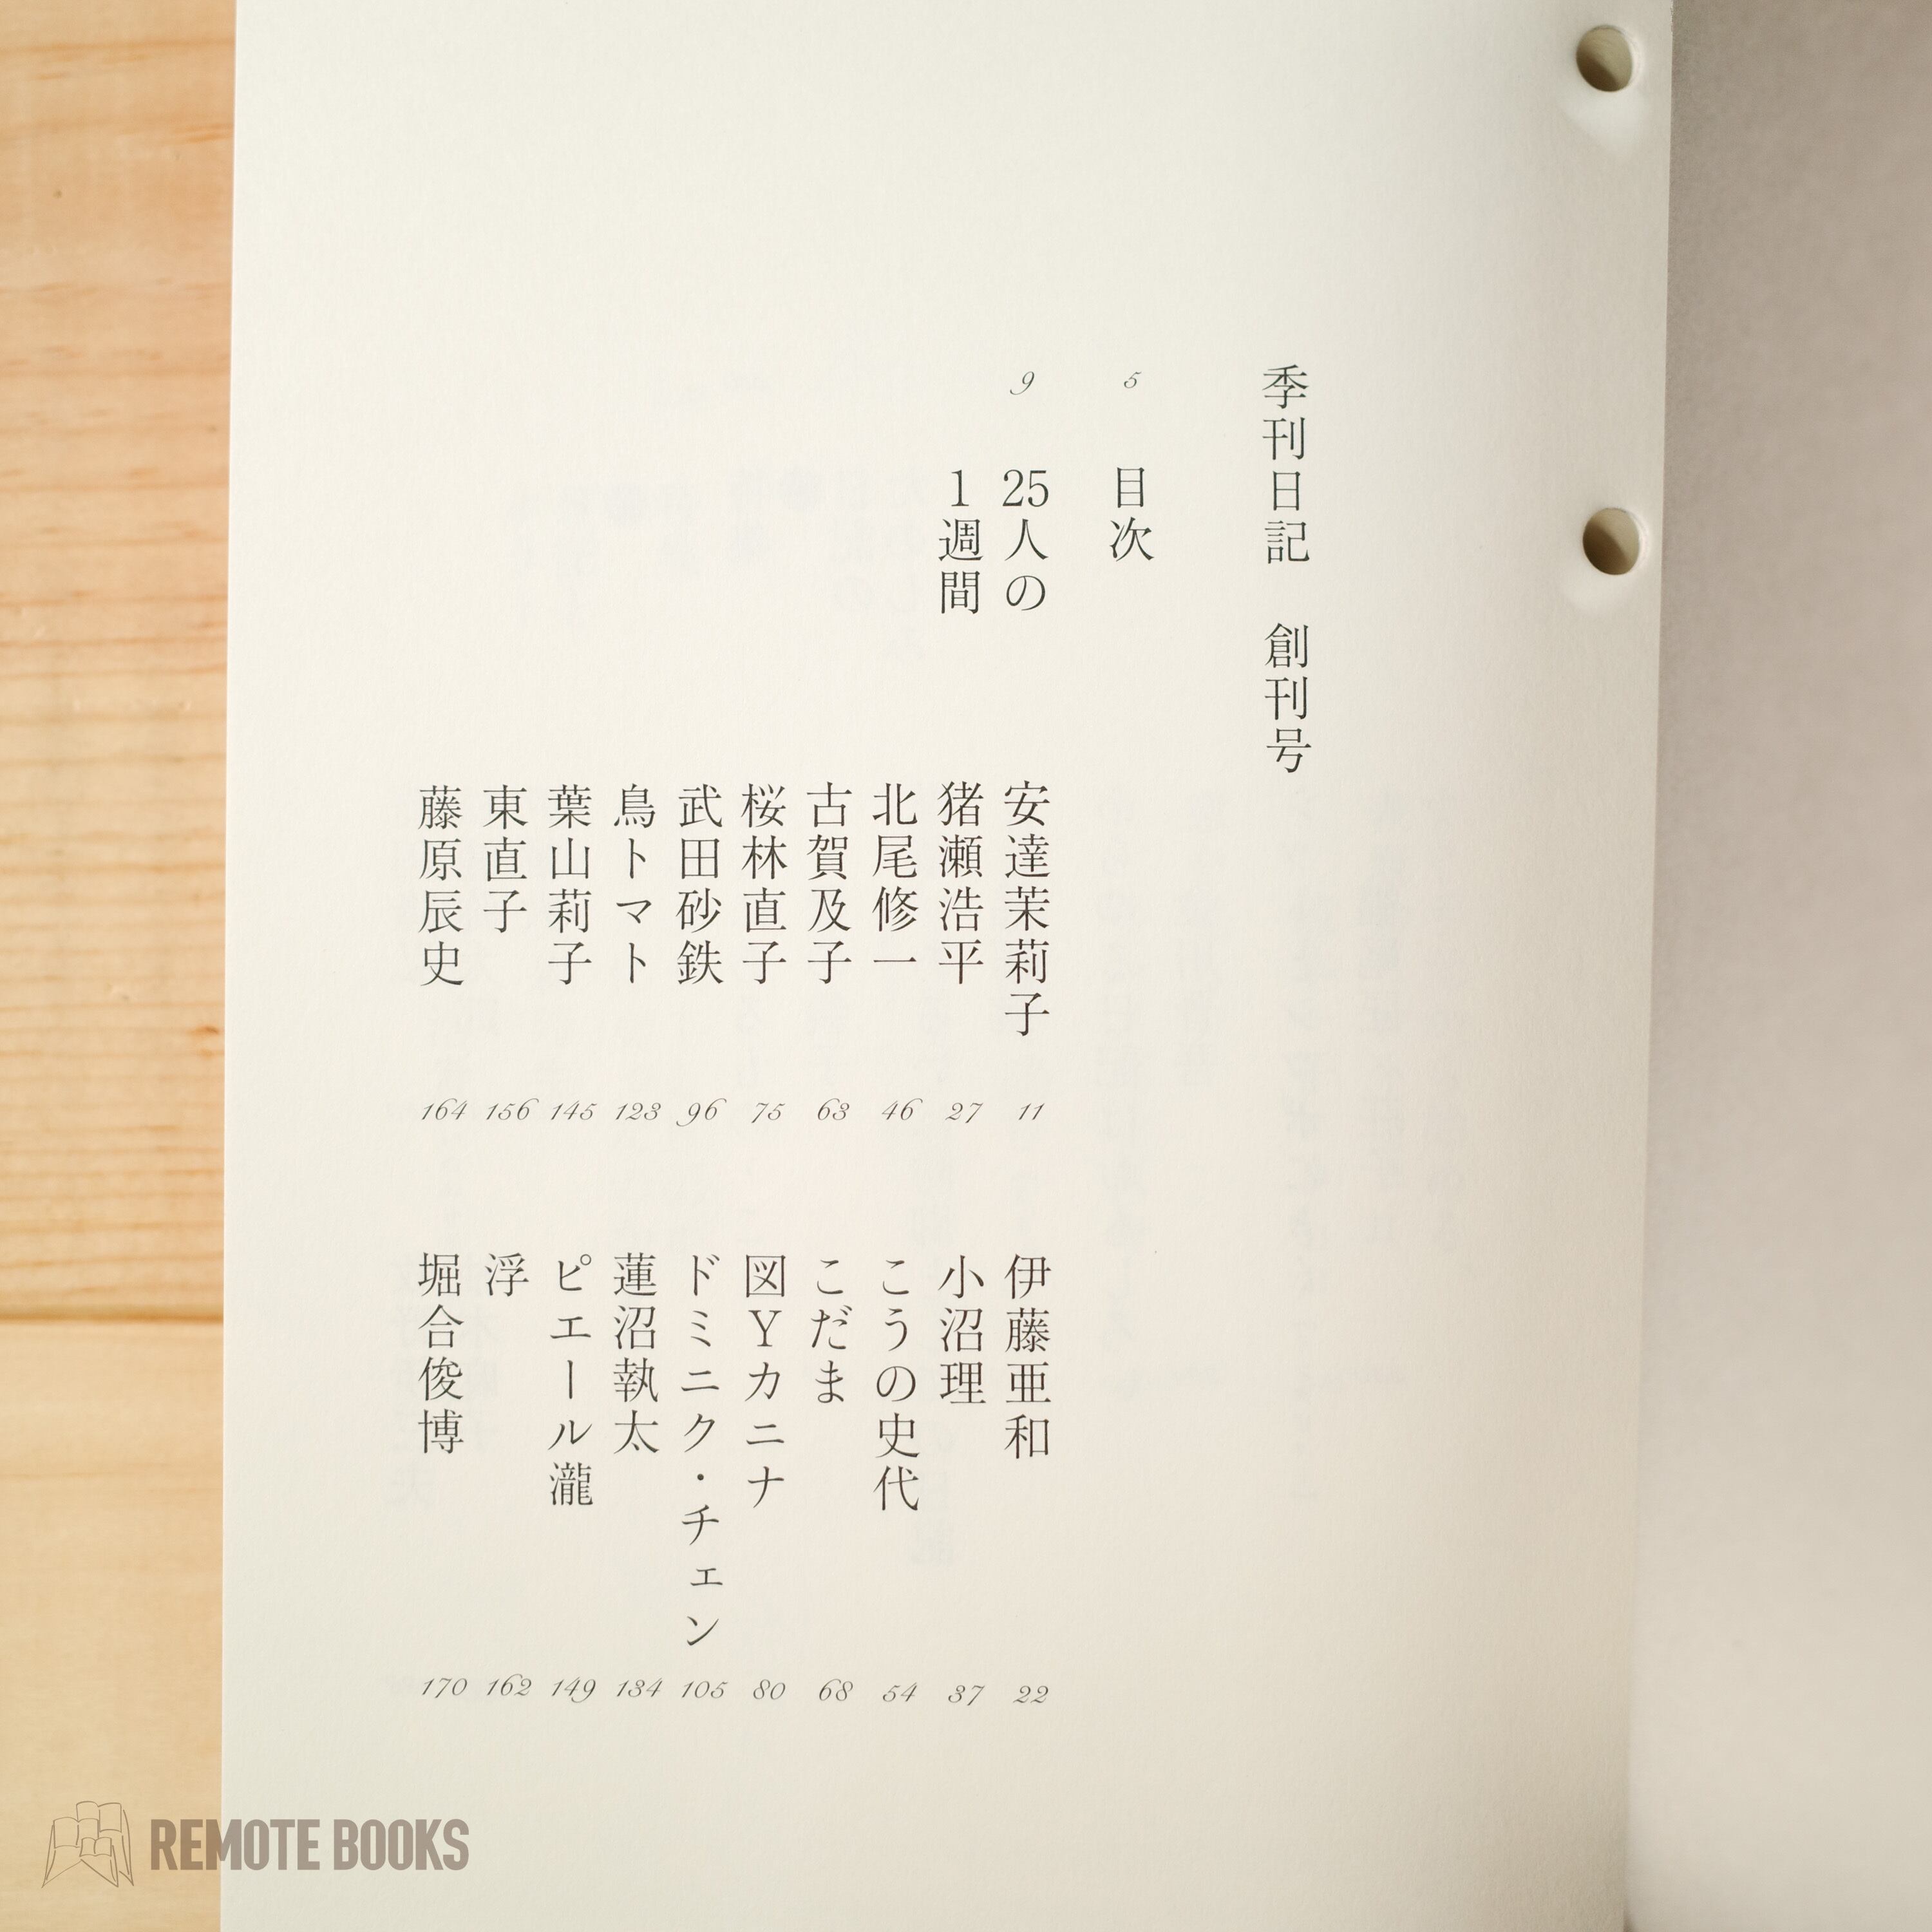 季刊日記　創刊号
5　目次
9　25人の
1週間
安達茉莉子　11
伊藤亜和　22
猪瀬浩平　27
小沼理　37
北尾修一　46
こうの史代　54
古賀及子　63
こだま　68
桜林直子　75
図Yカニナ　80
武田砂鉄　96
ドミニク・チェン　105
鳥トマト　123
蓮沼執太　134
葉山莉子　145
ピエール瀧　149
東直子　156
浮　162
藤原辰史　164
堀合俊博　170
REMOTE BOOKS